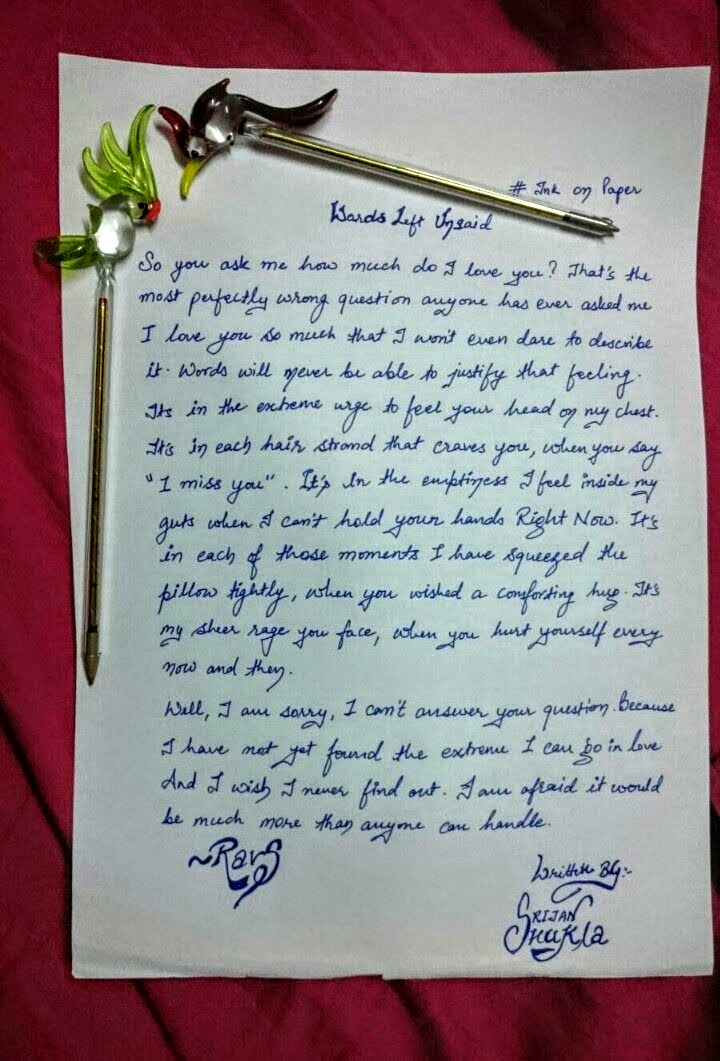 # Ink on Paper
Words Left Unsaid
So you ask me how much do I love you? That's the
most perfectly wrong question anyone has ever asked me
I love you so much that I won't even dare to describe
it. Words will never be able to justify that feeling.
Its in the extreme urge to feel your head on my chest.
It's in each hair strand that craves you, when you say
"I miss you". It's In the emptiness I feel inside my
guts when I can't hold your hands Right Now. It's
in each of those moments I have squeezed the
pillow tightly, when you wished a comforting hug. It's
my sheer rage you face, when you hurt yourself every
now and then.
Well, I am sorry, I can't answer your question. Because
I have not yet found the extreme I can go in love
And I wish I never find out. I am afraid it would
be much more than anyone can handle.
Written By:-
SRIJAN
Shukla